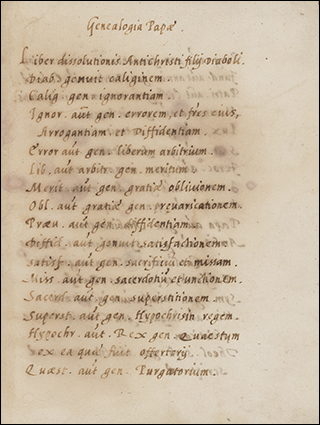 Genealogia Papæ.
Liber dissolutionis Antichristi filij Diaboli.
Diab. genuit caliginem.
Calig gen. ignorantiam.
Ignor. aut̄ gen. errorem, et frēs eius,
Arrogantiam et Diffidentiam.
Error aut̄ gen. liberum arbitrium.
Lib. aut̄ arbitr. gen. meritum.
Merit aut̄ gen. gratiæ oblivionem.
Obl. aut̄ gratiæ gen. prævaricationem.
Præv. aut̄ gen. diffidentiam.
Diffid. aut̄ genuit satisfactionem.
Satisf. aut̄ gen. sacrificiū et missam.
Miss. aut̄ gen. sacerdotiū et unctionem.
Sacerd. aut̄ gen. superstitionem.
Superst. aut̄ gen. Hypochrisin regem.
Hypochr. aut̄. Rex gen. Quæstum
ex ea quæ fuit offertorij
Quæst. aut̄ gen. Purgatorium.